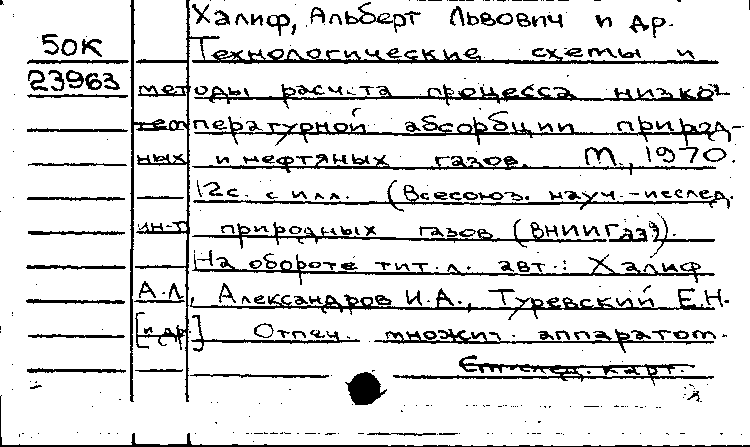 Халиф, Альберт Львович и др.
50К
Технологические схемы и
23963
методы расчета процесса низко-
температурной абсорбции природ-
ных и нефтяных газов. М., 1970.
12с. с илл. (Всесоюз. науч.-исслед.
ин-т природных газов (ВНИИГаз)).
На обороте тит. л. авт.: Халиф
А.Л., Александров И.А., Туревский Е.Н.
[и др] Отпеч. множит. аппаратом.
след. карт.